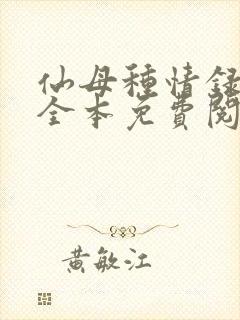 仙母種情録
全本免費閱
黃敏江